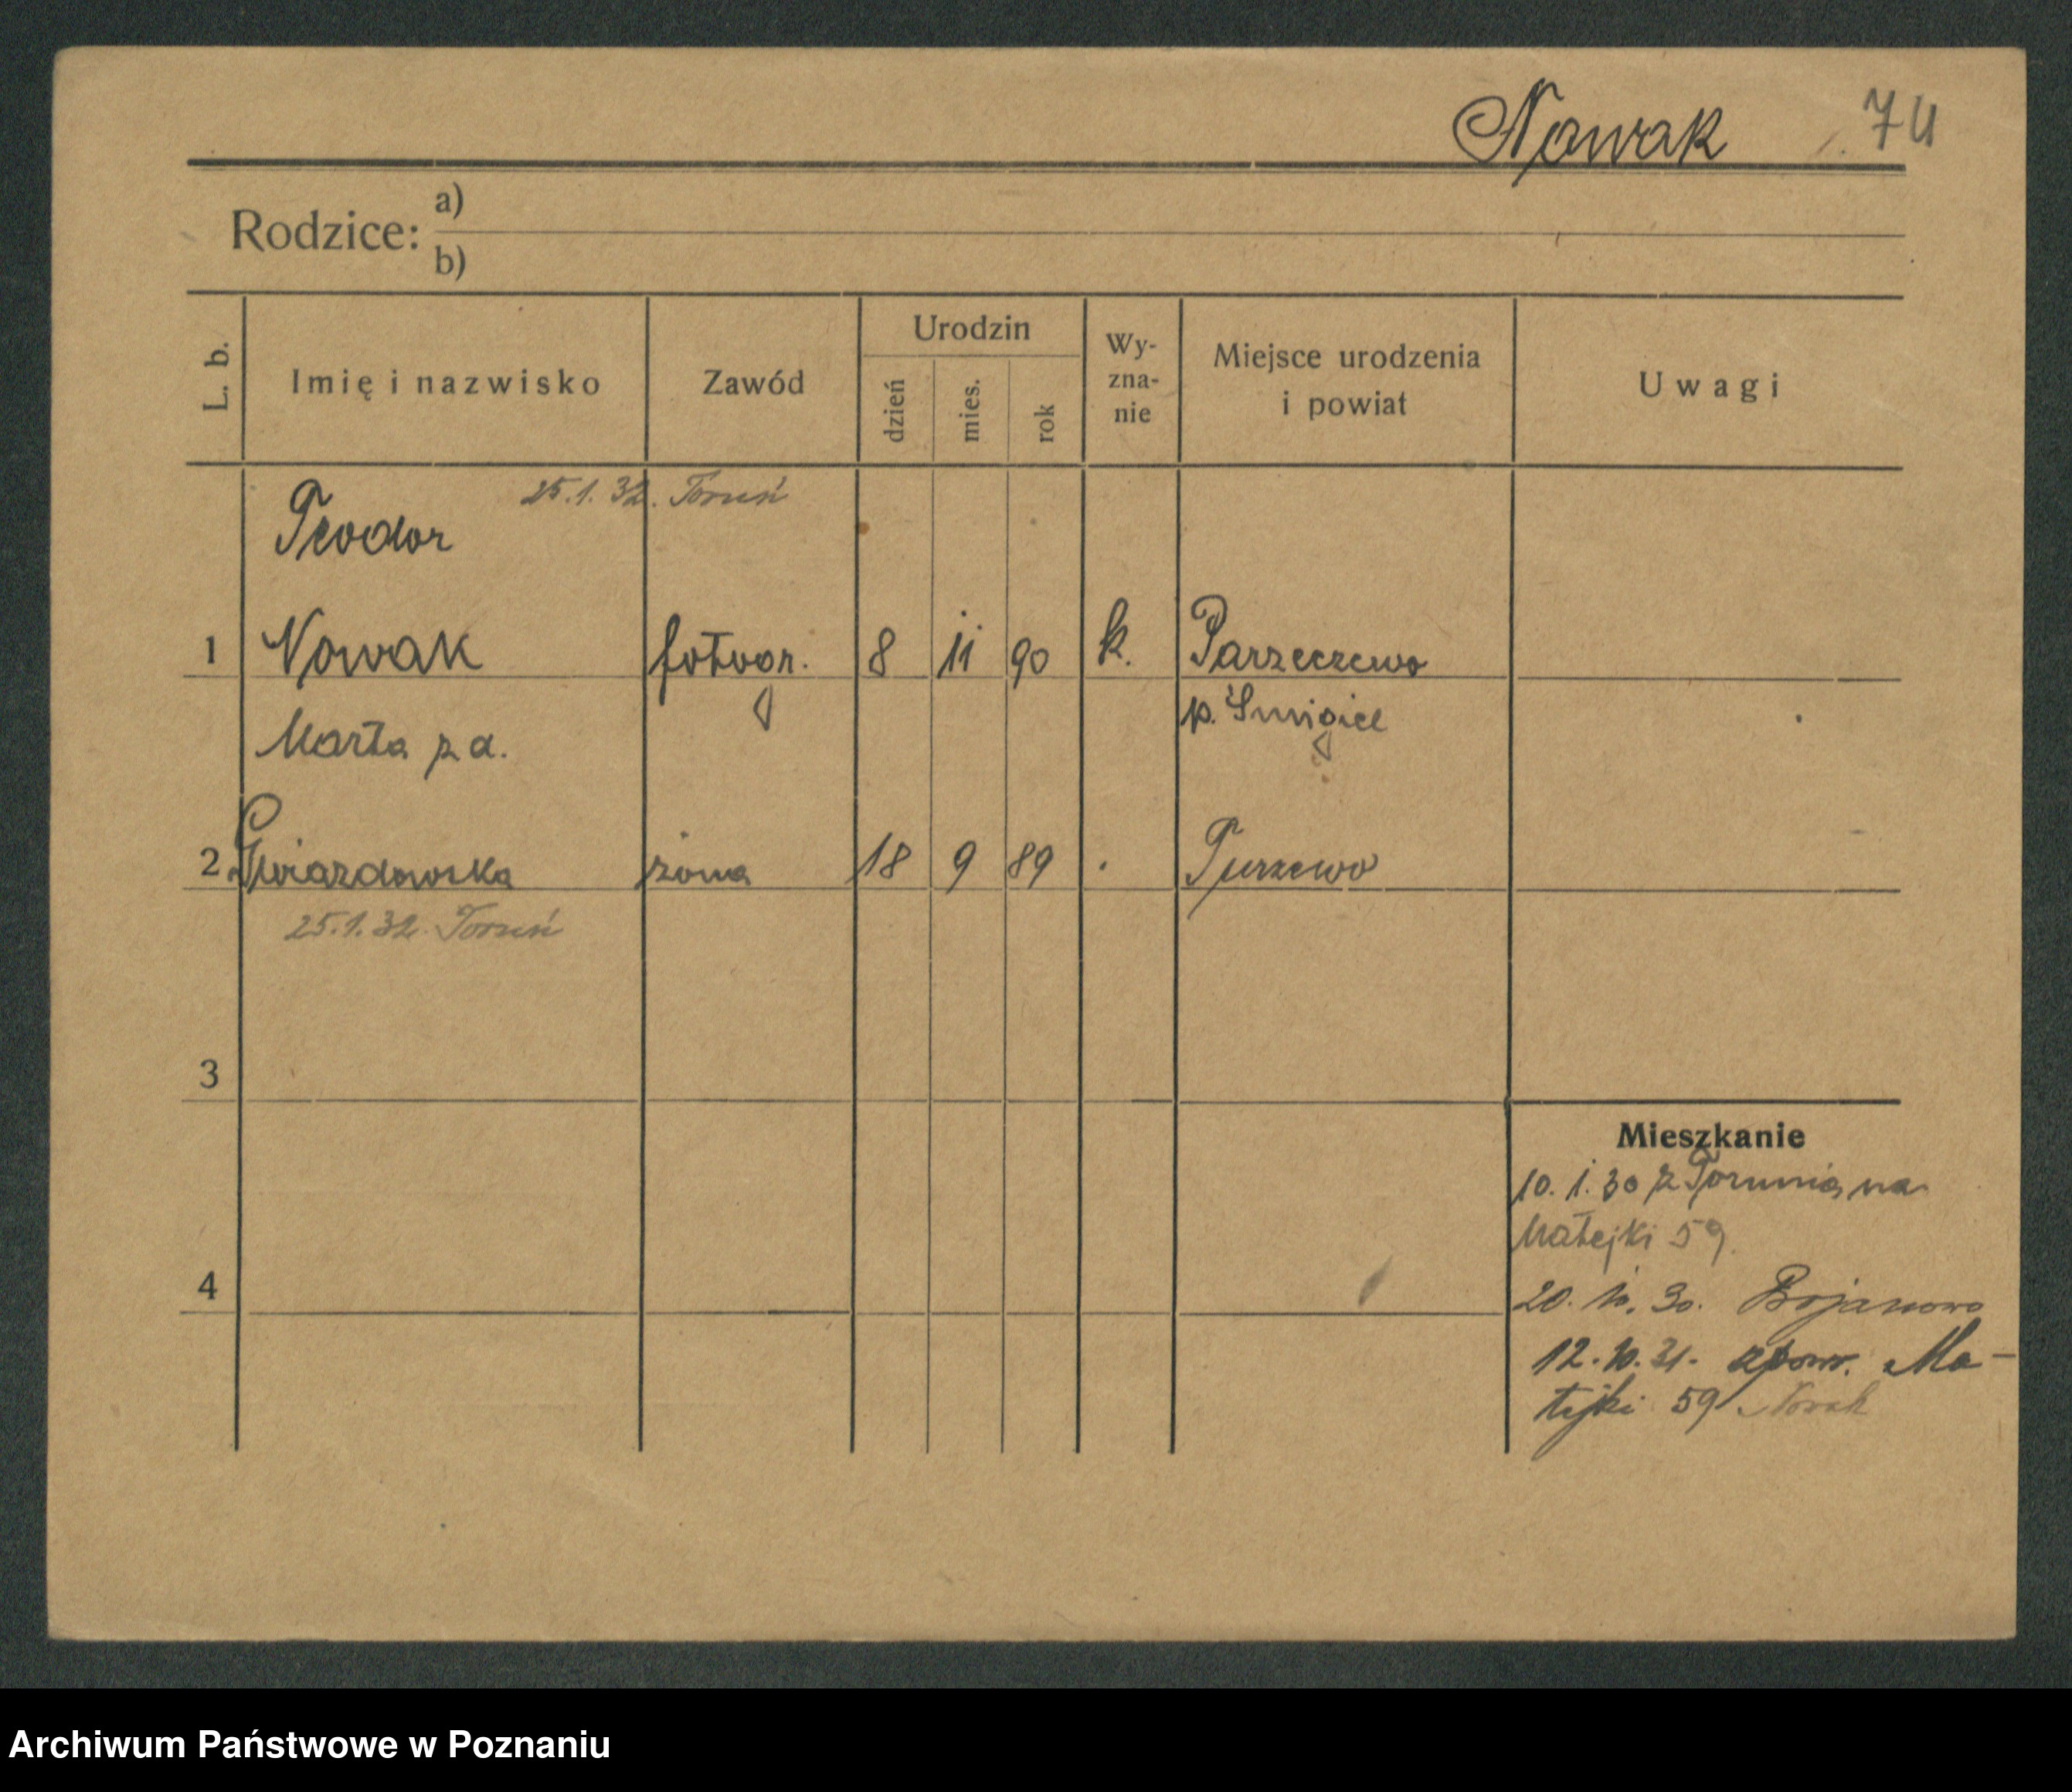 Nowak 74
Rodzice: a)
b)
L. b. Imię i nazwisko Zawód Urodzin dzień mies. rok Wy-zna-nie Miejsce urodzenia i powiat Uwagi
25.1.32. Toruń
Teodor
1 Nowak fotogr. 8 11 90 k. Parzeczewo
p. Śmigiel
Marta z d.
2 Gwiazdowska żona 18 9 89 Turzewo
25.1.32 Toruń
3
Mieszkanie
10.1.30 z Torunia na
Matejki 59.
4
20.10.30. Bojanowo
12.10.31. zpow. Ma-
tejki 59 Nowak
Archiwum Państwowe w Poznaniu